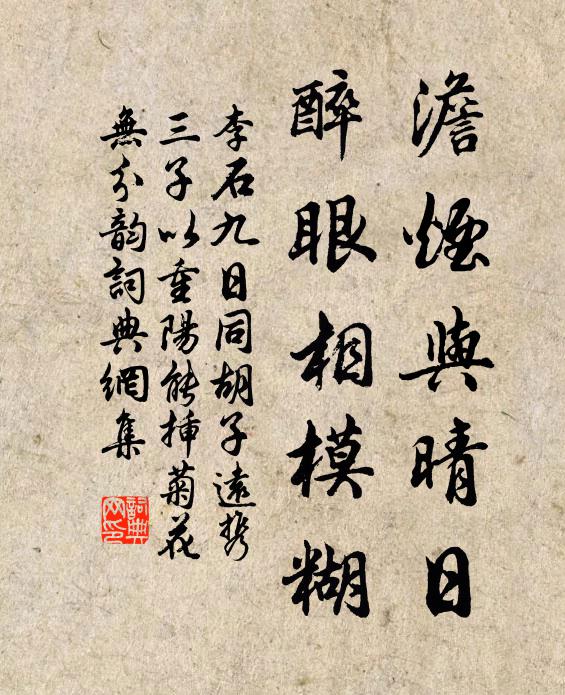 澹煙與晴日
醉眼相模糊
李石九日同胡子遠攜
三子以重陽能挿菊花
無分韵詞典網集
詞典网印